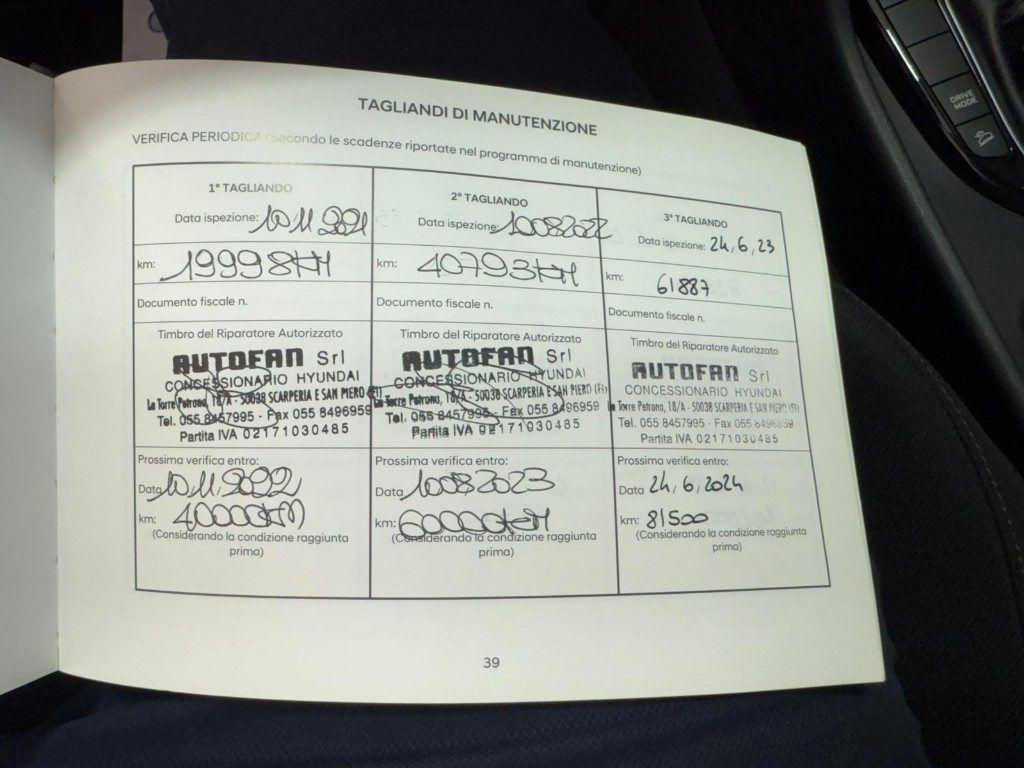 TAGLIANDI DI MANUTENZIONE
VERIFICA PERIODICA (Secondo le scadenze riportate nel programma di manutenzione)
1° TAGLIANDO
Data ispezione: 10 11 2021
km: 19998 KM
Documento fiscale n.
Timbro del Riparatore Autorizzato
AUTOFAN Srl
CONCESSIONARIO HYUNDAI
La Torre Petrona, 18/A - 50038 SCARPERIA E SAN PIERO (FI)
Tel. 055 8457995 - Fax 055 8496959
Partita IVA 02171030485
Prossima verifica entro:
Data 10.11.2022
km: 40000 KM
(Considerando la condizione raggiunta
prima)
2° TAGLIANDO
Data ispezione: 10082022
km: 40793 KM
Documento fiscale n.
Timbro del Riparatore Autorizzato
AUTOFAN Srl
CONCESSIONARIO HYUNDAI
La Torre Petrona, 18/A - 50038 SCARPERIA E SAN PIERO (FI)
Tel. 055 8457995 - Fax 055 8496959
Partita IVA 02171030485
Prossima verifica entro:
Data 10082023
km: 60000 KM
(Considerando la condizione raggiunta
prima)
3° TAGLIANDO
Data ispezione: 24,6,23
km: 61887
Documento fiscale n.
Timbro del Riparatore Autorizzato
AUTOFAN Srl
CONCESSIONARIO HYUNDAI
La Torre Petrona, 18/A - 50038 SCARPERIA E SAN PIERO (FI)
Tel. 055 8457995 - Fax 055 8496959
Partita IVA 02171030485
Prossima verifica entro:
Data 24,6,2024
km: 81500
(Considerando la condizione raggiunta
prima)
39
DRIVE
MODE